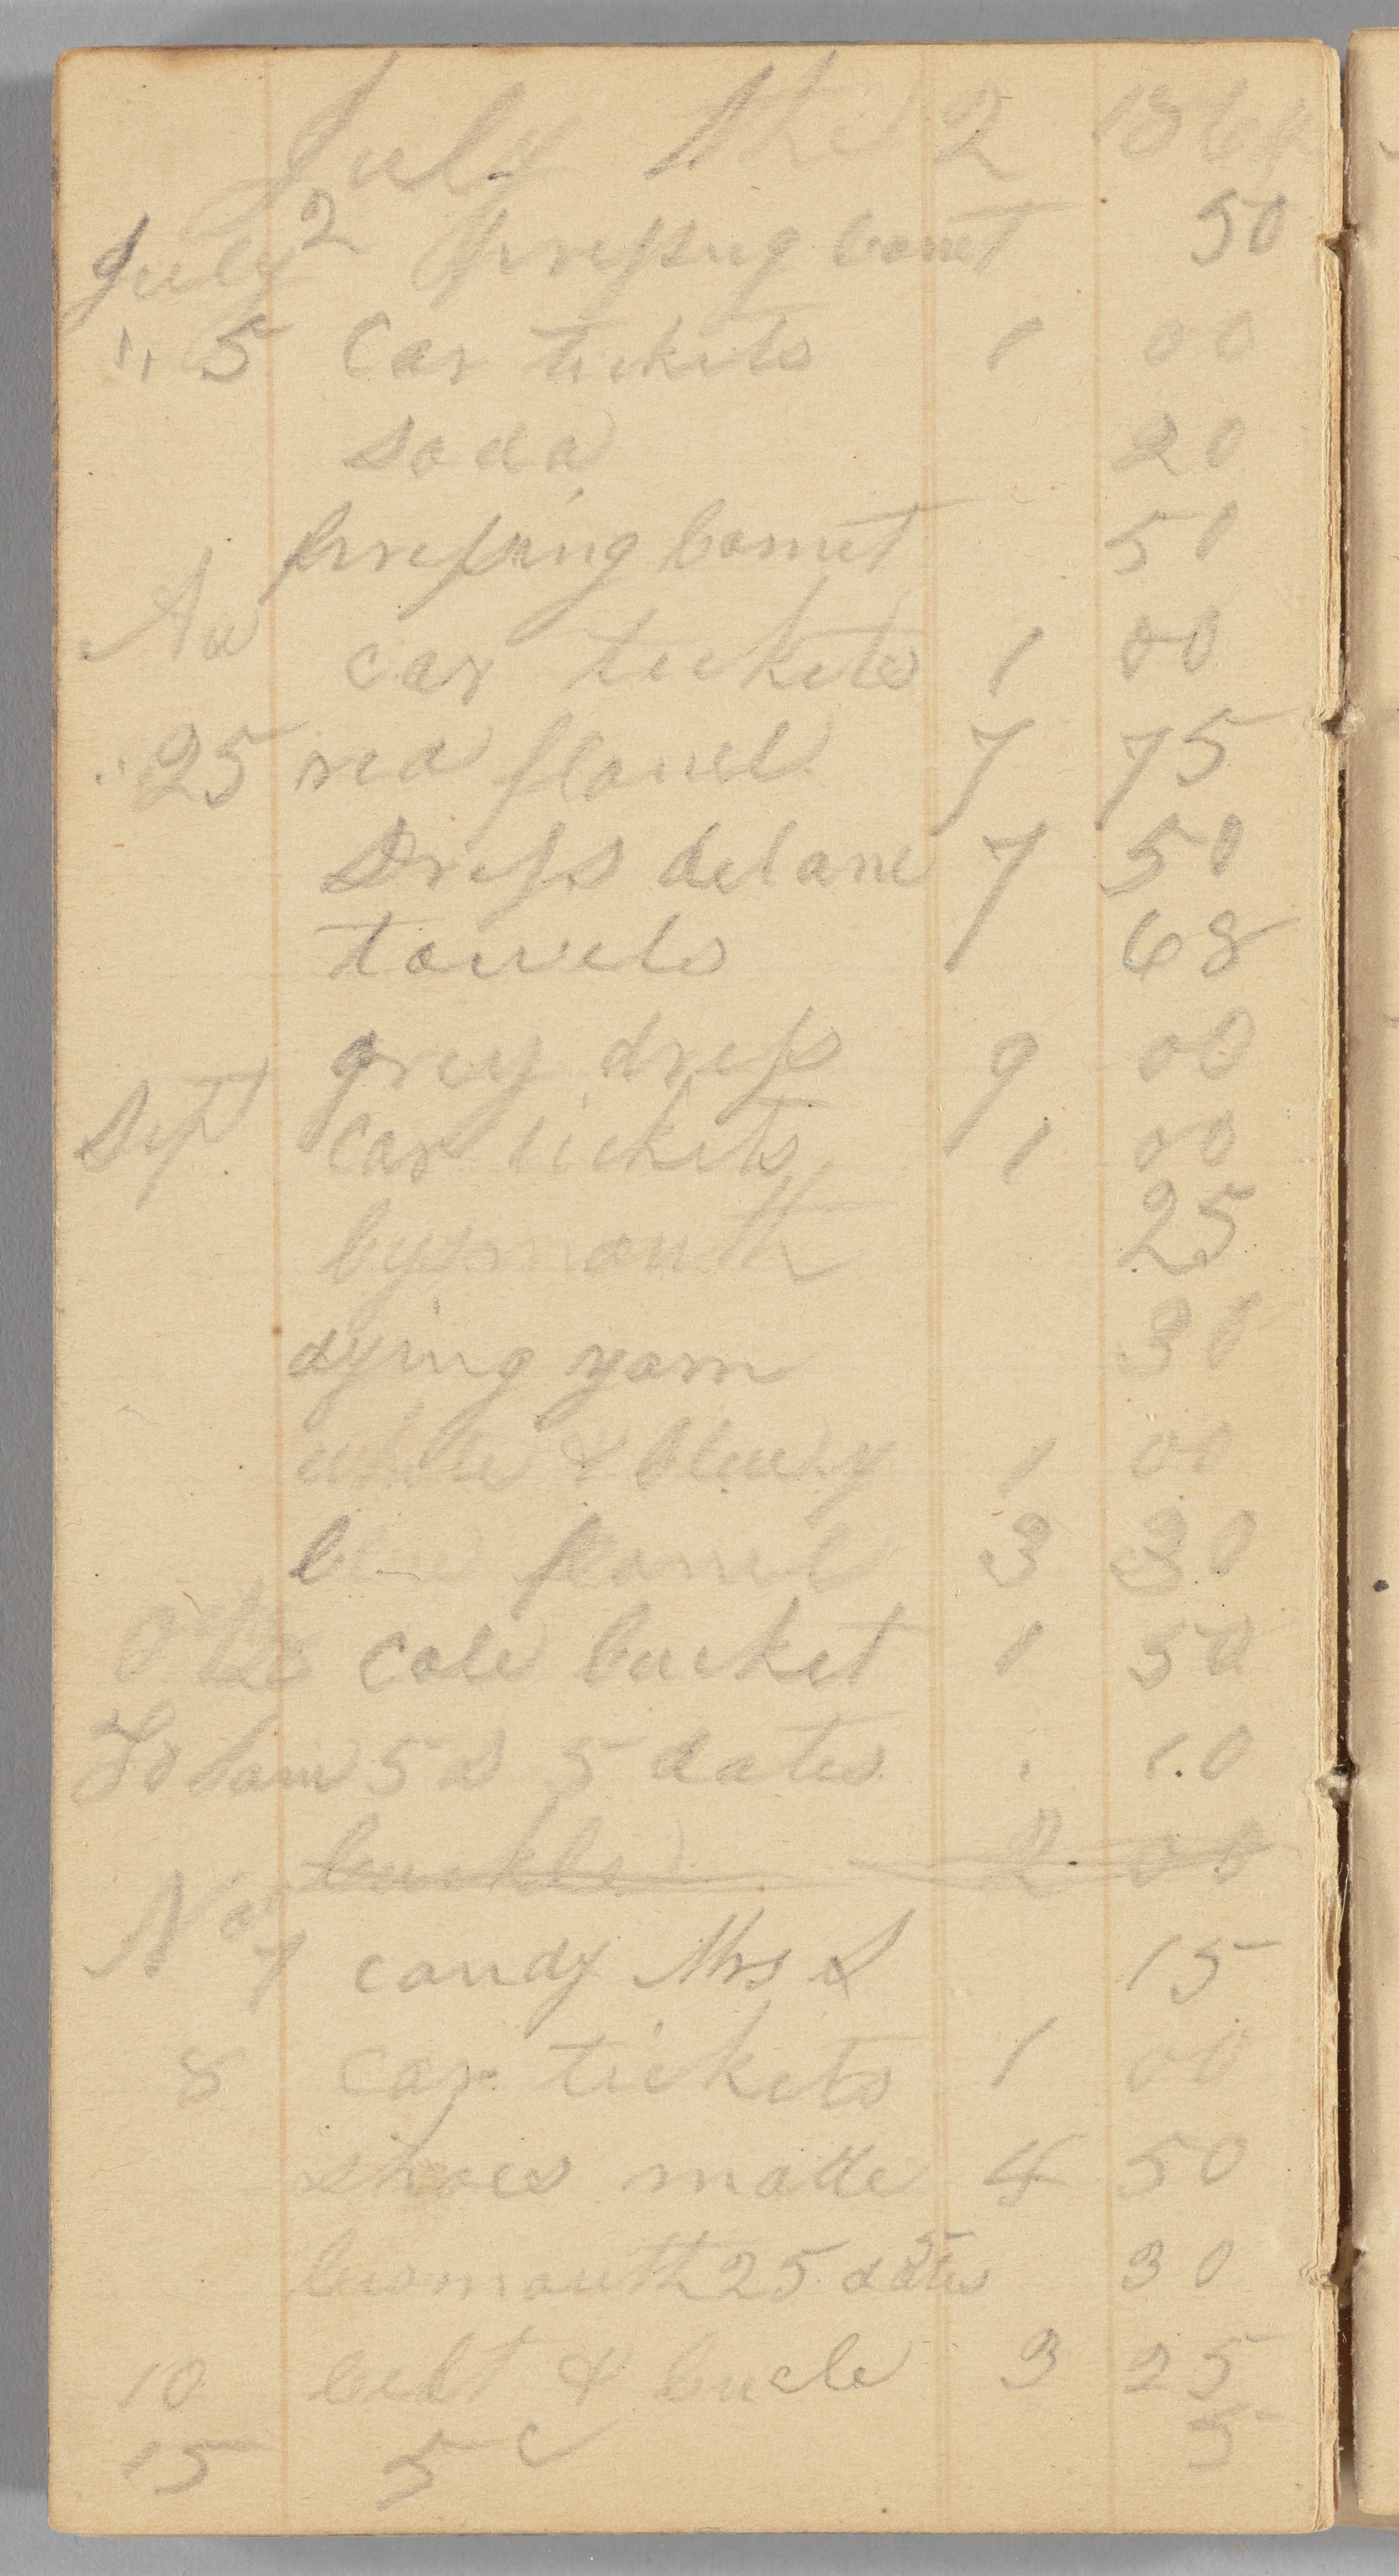 July the 2 1864
July 2 pressing bonet 50
" 5 Car tickets 1 00
soda 20
pressing bonnet 50
Au car tickets 1 00
" 25 red flanel 7 75
Dress delane 7 50
towels 1 68
grey dress 9 00
Sept car tickets 1 00
bysmouth 25
dying yarn 30
white & blue y 1 00
blue flanel 3 30
cole bucket 1 50
To Sam 5 & 5 dates 10
buckle 2 00
Nov 7 candy Mrs S 15
8 car tickets 1 00
shoes made 4 50
bismouth 25 dates 5 30
10 belt & bucle 3 25
15 5 c 5